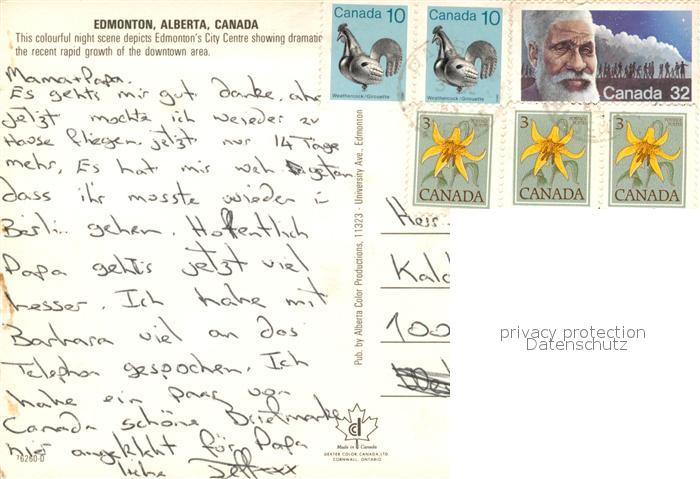 EDMONTON, ALBERTA, CANADA
This colourful night scene depicts Edmonton's City Centre showing dramatic
the recent rapid growth of the downtown area.
Mama + Papa.
Es gehts mir gut danke, aber
jetzt mochte ich weieder zu
House fliegen. jetzt nur 14 Tage
mehr. Es hat mir weh getan
dass ihr musste wieder in
Berli.. gehen. Hoffentlich
Papa gehts jetzt viel
besser. Ich habe mit
Barbara viel an das
Telephon gespochen. Ich
habe ein paar von
Canada schöne Briefmarken
hier angeklebt für Papa
liebe Jeff xxx
76260-D
Pub. by Alberta Color Productions, 11323 - University Ave., Edmonton
Made in Canada
DEXTER COLOR CANADA, LTD.
CORNWALL, ONTARIO
Canada 10
Weathercock/Girouette
Canada 10
Weathercock/Girouette
Canada 32
3
CANADA
3
CANADA
3
CANADA
Herr
Kald
100
privacy protection
Datenschutz